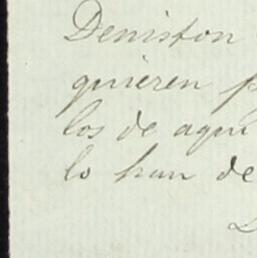 Deniston
quieren p
los de aqui
lo han de